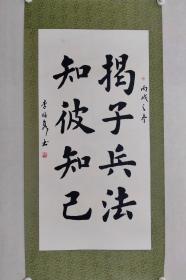 丙戌之冬
揭子兵法
知彼知己
李
书